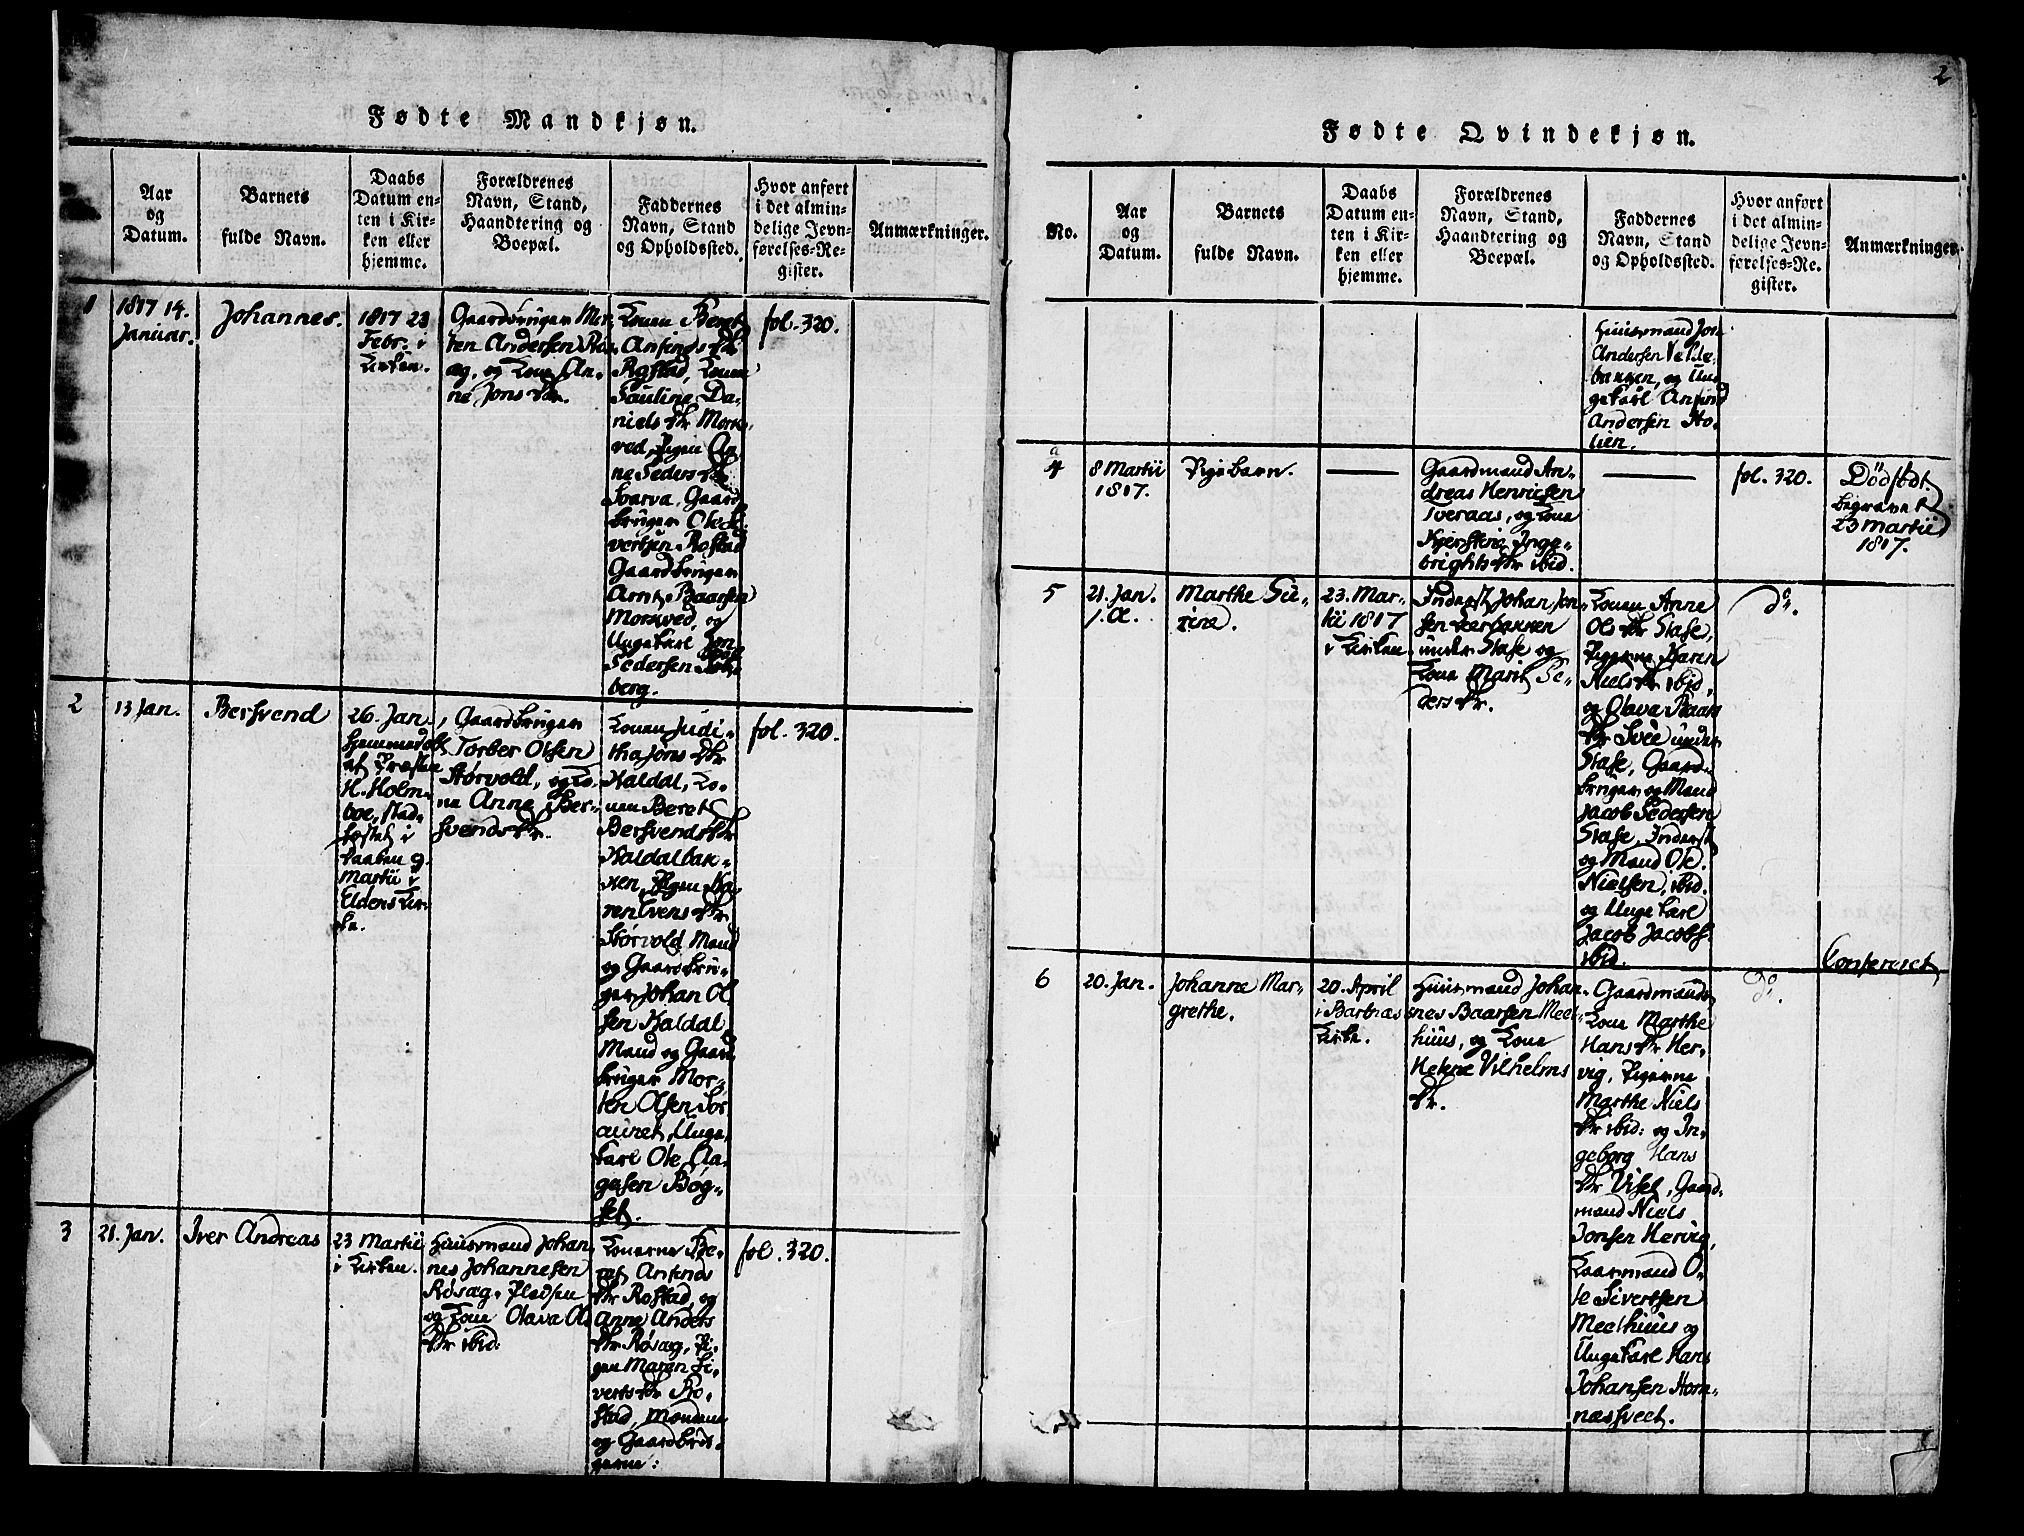 Fødte Mandkjøn.
Aar
og
Datum.
Barnets
fulde Navn.
Daabs
Datum en-
ten i Kir-
ken eller
hjemme.
Forældrenes
Navn, Stand,
Haandtering og
Boepæl.
Faddernes
Navn, Stand
og Opholdssted.
Hvor anført
i det almin-
delige Jevn-
førelses-Re-
gister.
Anmærkninger.
1
1817 14.
Januar.
Johannes.
1817 23
Febr. i
Kirken.
Gaardbruger Mor-
ten Andersen
og Kone An-
ne Jons dtr.
Konen Beret
Anfinds dtr
Rostad, Konen
Pauline Da-
niels dtr Mork-
ved, Pigen An-
ne Peders dtr
Svarva, Gaard-
bruger Ole Si-
vertsen Rostad
Gaardbruger
Arnt Baarsen
Morkved, og
Ungekarl Jon
Pedersen
berg.
fol. 320.
2
13 Jan.
Bersvend
26. Jan.
hjemmedøbt
af Præsten
H. Holm-
boe, stad-
fæstet i
Daaben 9.
Martii i
Eldens Kir-
ke.
Gaardbruger
Torber Olsen
Størvold, og Ko-
ne Anne Ber-
svends dtr.
Konen Judi-
tha Jons dtr
Kaldal, Ko-
nen Beret
Bersvends dtr
Kaldalbak-
ken, Pigen Ka-
ren Evens dtr
Størvold, Mand
og Gaardbru-
ger Johan Ol-
sen Kaldal
Mand og Gaard-
bruger Mor-
ten Olsen Sor-
aunet, Unge-
karl Ole Aa-
gesen Bøg-
set.
fol. 320.
3
21. Jan.
Iver Andreas
23 Martii
i Kirken.
Huusmand Johan-
nes Johannesen
Røsæg-Pladsen
og Kone Olava Ols
dtr ibid:
Konerne Be-
ret Anfinds
dtr Rostad, og
Anne Anders
dtr Røsæg, Pi-
gen Maren Si-
verts dtr Ro-
stad, Mændene
og Gaardbru-
gerne:
fol. 320.
2
Fødte Qvindekjøn.
No.
Aar
og
Datum.
Barnets
fulde Navn.
Daabs
Datum en-
ten i Kir-
ken eller
hjemme.
Forældrenes
Navn, Stand,
Haandtering og
Boepæl.
Faddernes
Navn, Stand
og Opholdssted.
Hvor anført
i det almin-
delige Jevn-
førelses-Re-
gister.
Anmærkninger.
Huusmand Jon
Andersen Velde-
bakken, og Un-
gekarl Anfind
Andersen Ho-
lien.
a
4
8 Martii
1817.
Pigebarn.
Gaardmand An-
dreas Henricsen
Tveraas, og Kone
Kjerstine Inge-
brights dtr ibid.
fol. 320.
Dödfödt
begravet
23 Martii
1817.
5
21. Jan.
Marthe Su-
rine.
23. Mar-
tii 1817
i Kirken.
Inderst Johan Jon-
sen Leerbakken
under Stafe og
Kone Marit Pe-
ders dtr.
Konen Anne
Ols dtr Stafe,
Pigerne Karen
Niels dtr ibid,
og Olava Baars
dtr Svee under
Stafe, Gaard-
bruger og Mand
Jacob Pedersen
Stafe, Inderst
og Mand Ole
Nielsen, ibid.
og Ungekarl
Jacob Jacobs.
ibid.
do.
6
20. Jan.
Johanne Mar-
grethe.
20. April
i Bartnæs
Kirke.
Huusmand Johan-
nes Baarsen Meel-
huus, og Kone
Helene Vilhelms
dtr.
Gaardmands
Kone Marthe
Hans dtr Her-
vig, Pigerne
Marthe Niels
dtr ibid: og In-
geborg Hans
dtr Viset, Gaard-
mand Niels
Jonsen Hervig,
Kaarmand O-
le Sivertsen
Meelhuus og
Ungekarl Hans
Johansen Horn-
næssveet.
do.
Confereret